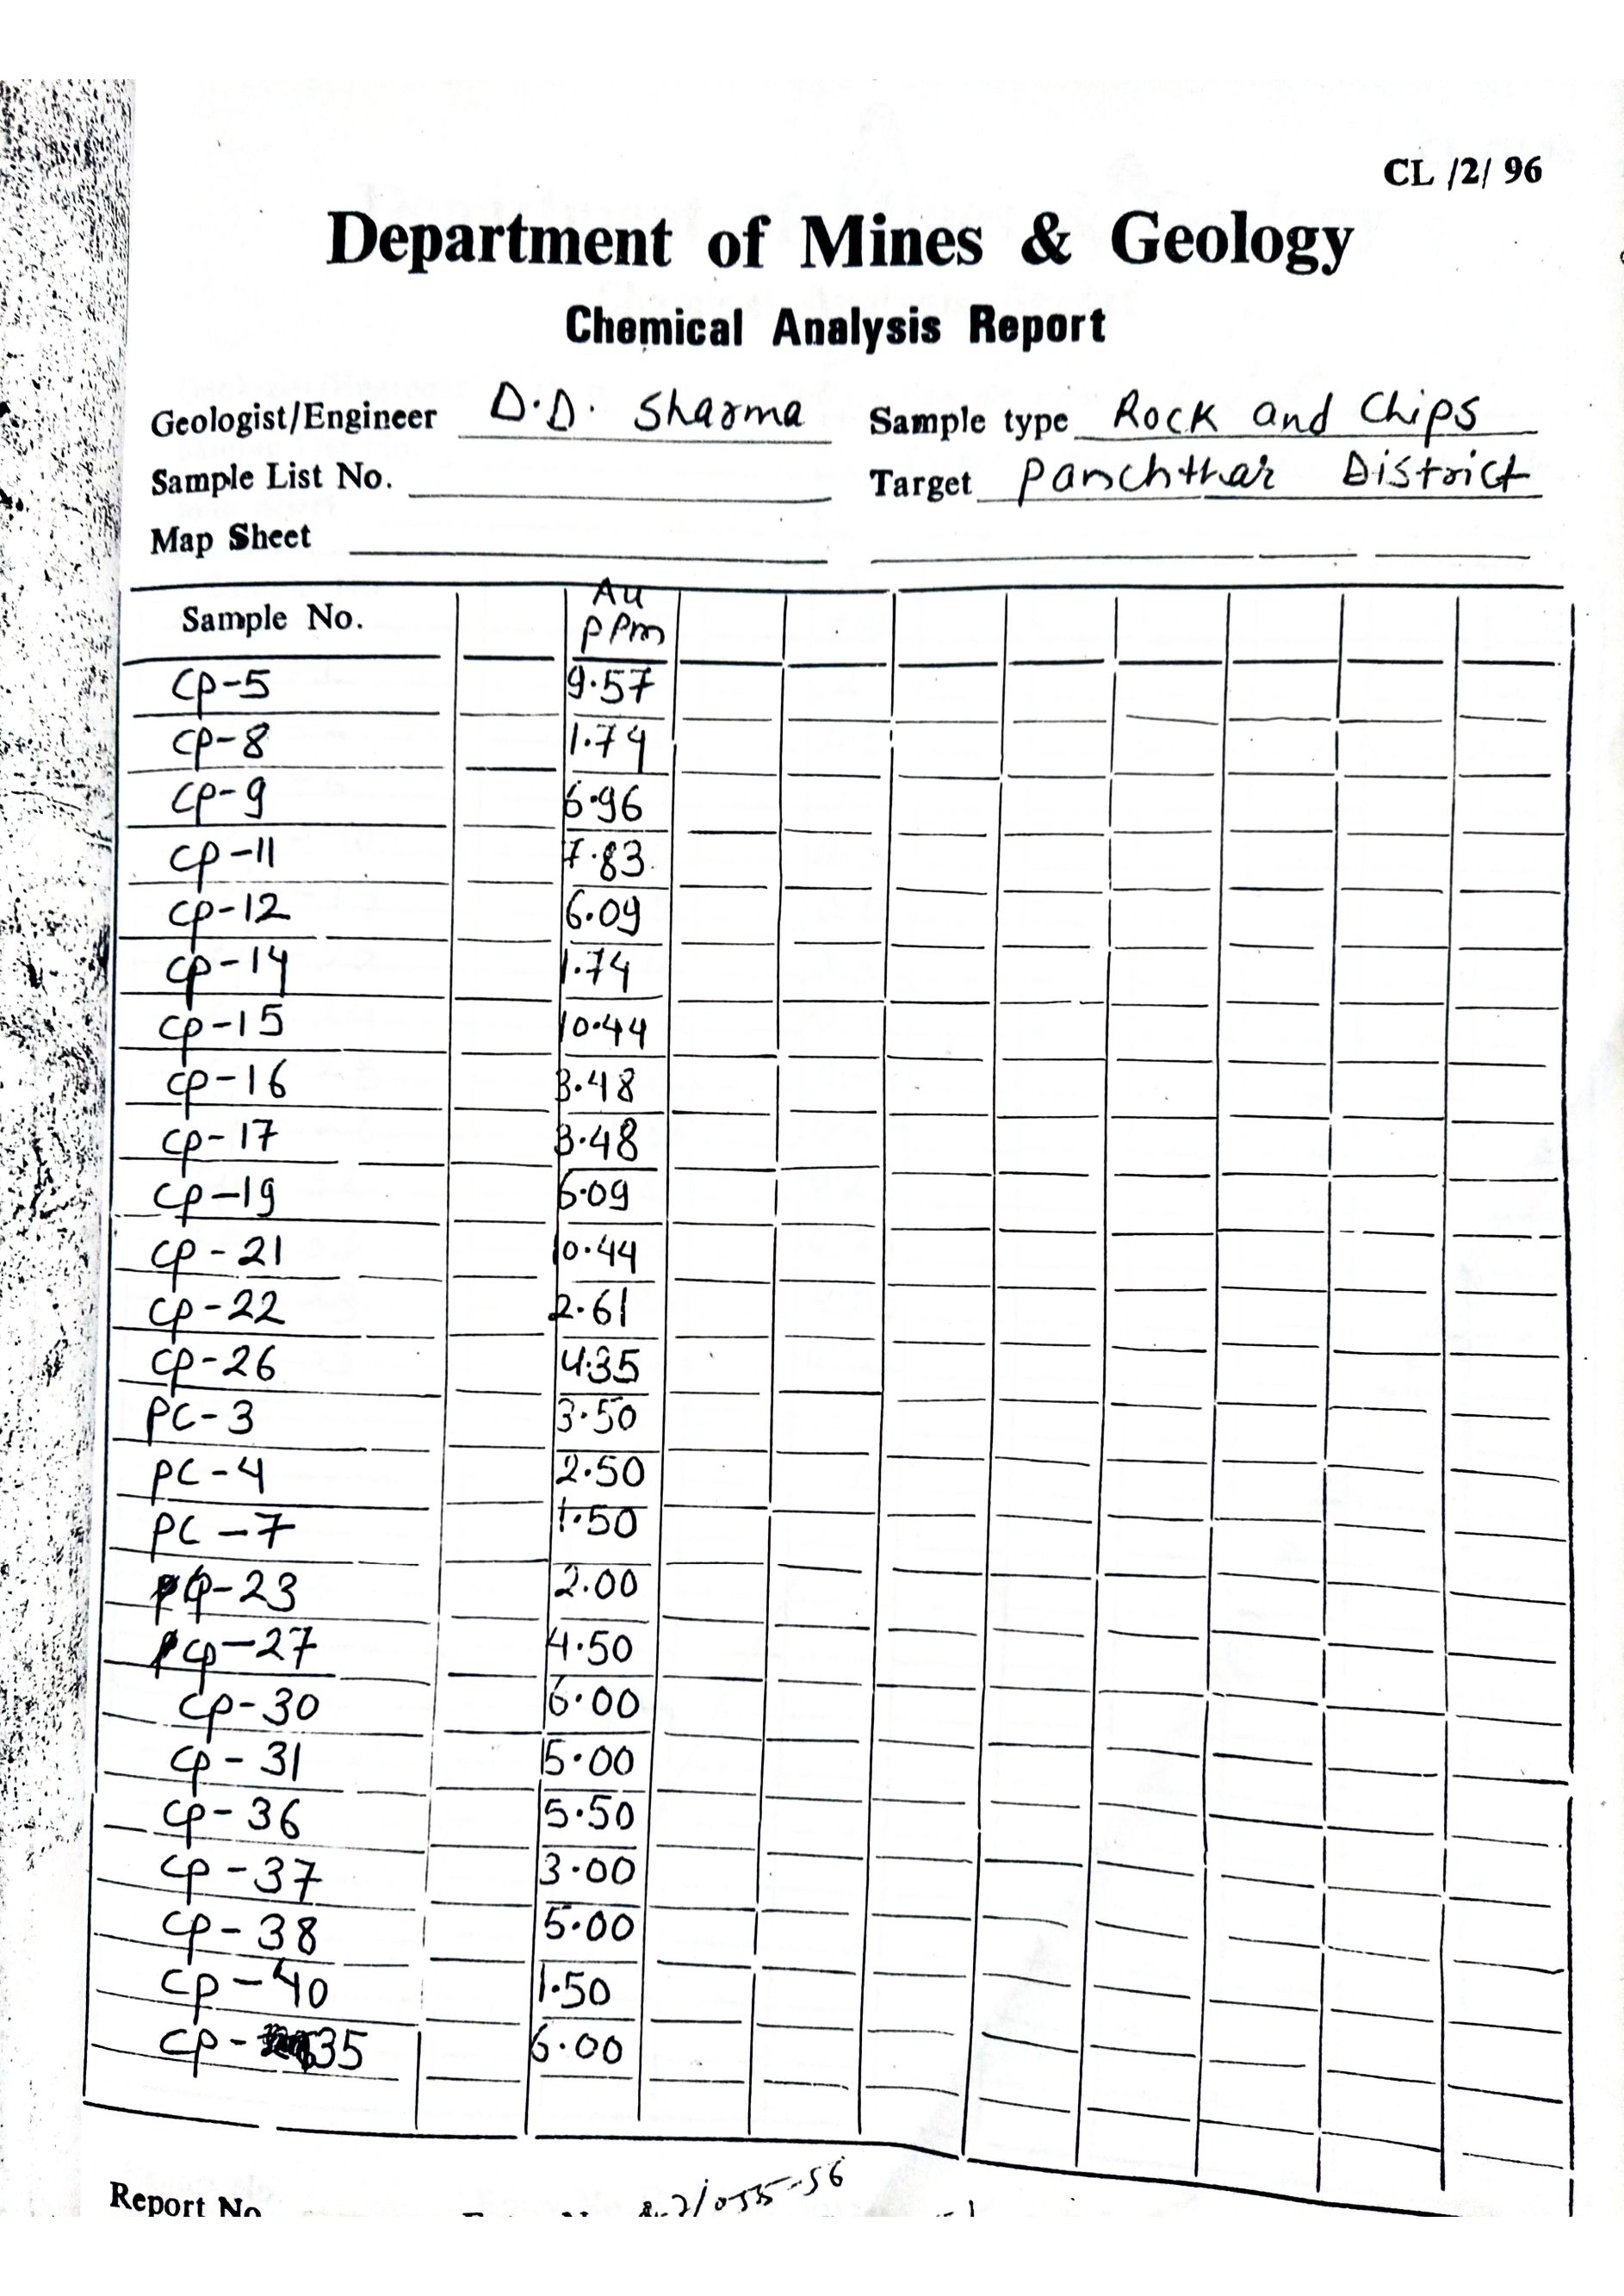 CL /2/ 96
Department of Mines & Geology
Chemical Analysis Report
Geologist/Engineer D.D. Sharma Sample type Rock and Chips
Sample List No. Target Panchthar District
Map Sheet
Sample No. Au PPm
CP-5 9.57
CP-8 1.74
CP-9 6.96
CP-11 7.83
CP-12 6.09
CP-14 1.74
CP-15 10.44
CP-16 3.48
CP-17 3.48
CP-19 6.09
CP-21 10.44
CP-22 2.61
CP-26 4.35
PC-3 3.50
PC-4 2.50
PC-7 1.50
CP-23 2.00
CP-27 4.50
CP-30 6.00
CP-31 5.00
CP-36 5.50
CP-37 3.00
CP-38 5.00
CP-40 1.50
CP-35 6.00
Report No